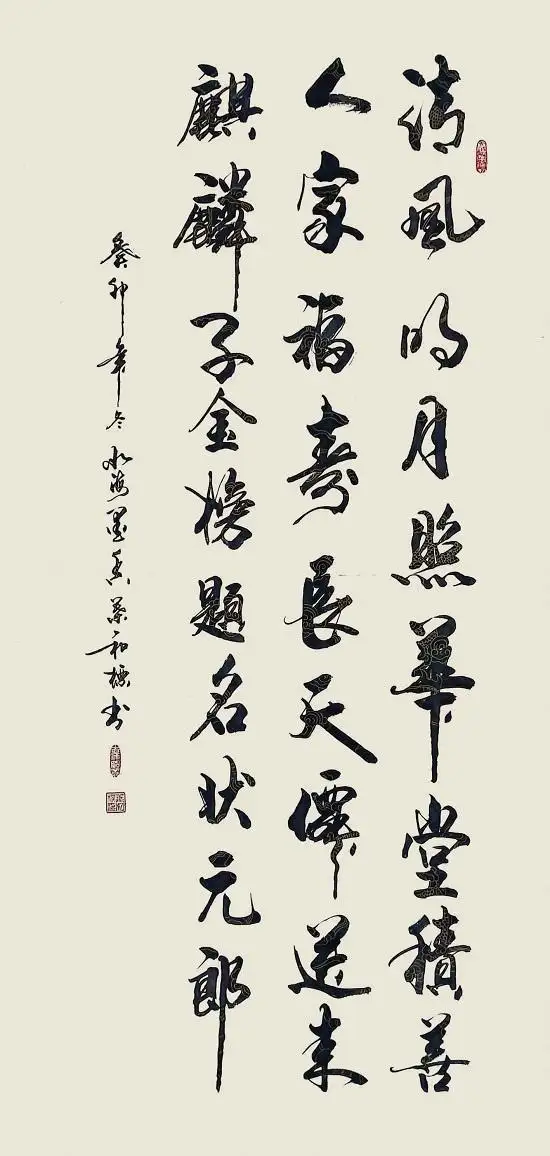 清風明月照華堂積善
人家福壽長天僊送来
麒麟子金榜題名状元郎
癸卯年冬海墨香和標书